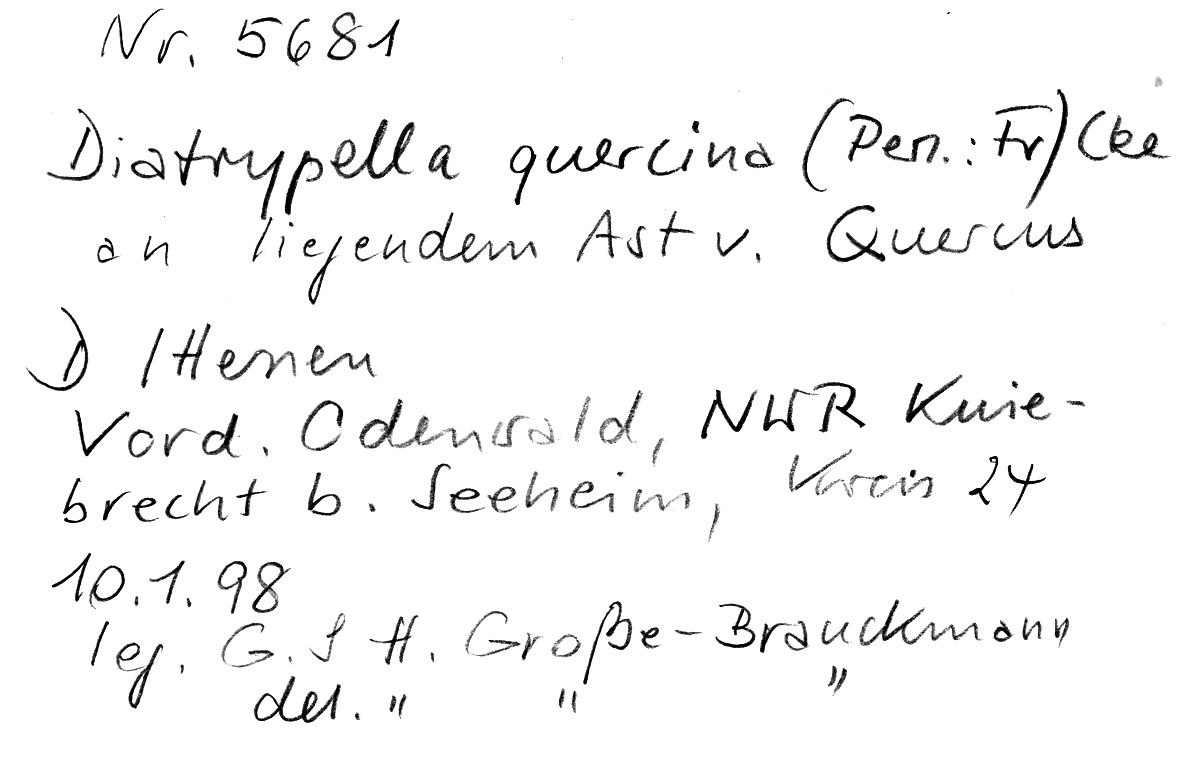 Nr. 5681
Diatrypella quercina (Pers.: Fr) Cke
an liegendem Ast v. Quercus
D / Hessen
Vord. Odenwald, NWR Knie-
brecht b. Seeheim, Kreis 24
10.1.98
leg. G. & H. Große-Brauckmann
det. " " "